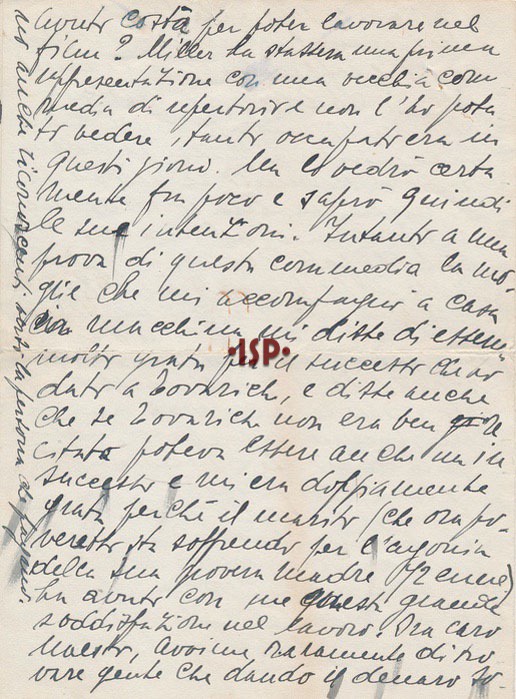 avuto costà per poter lavorare nel
film? Miller ha stassera una prima
rappresentazione con una vecchia com
media di repertorio e non l'ho potu
to vedere, tanto occupato era in
questi giorni. Ma lo vedrò certa
mente fra poco e saprò quindi
le sue intenzioni. Intanto a una
prova di questa commedia la mo-
glie che mi accompagnò a casa
con macchina mi disse di essermi
molto grata per il successo che ho
dato a e disse anche
che se non era ben re
citata poteva essere anche un in
successo e mi era doppiamente
grata perché il marito (che ora po-
veretto sta soffrendo per l'agonia
della sua povera madre 72enne)
ha avuto con me questa grande
soddisfazione nel lavoro. Ma caro
Maestro, avviene raramente di tro
vare gente che dando il denaro so-
no anche riconoscenti verso la persona che
·ISP·